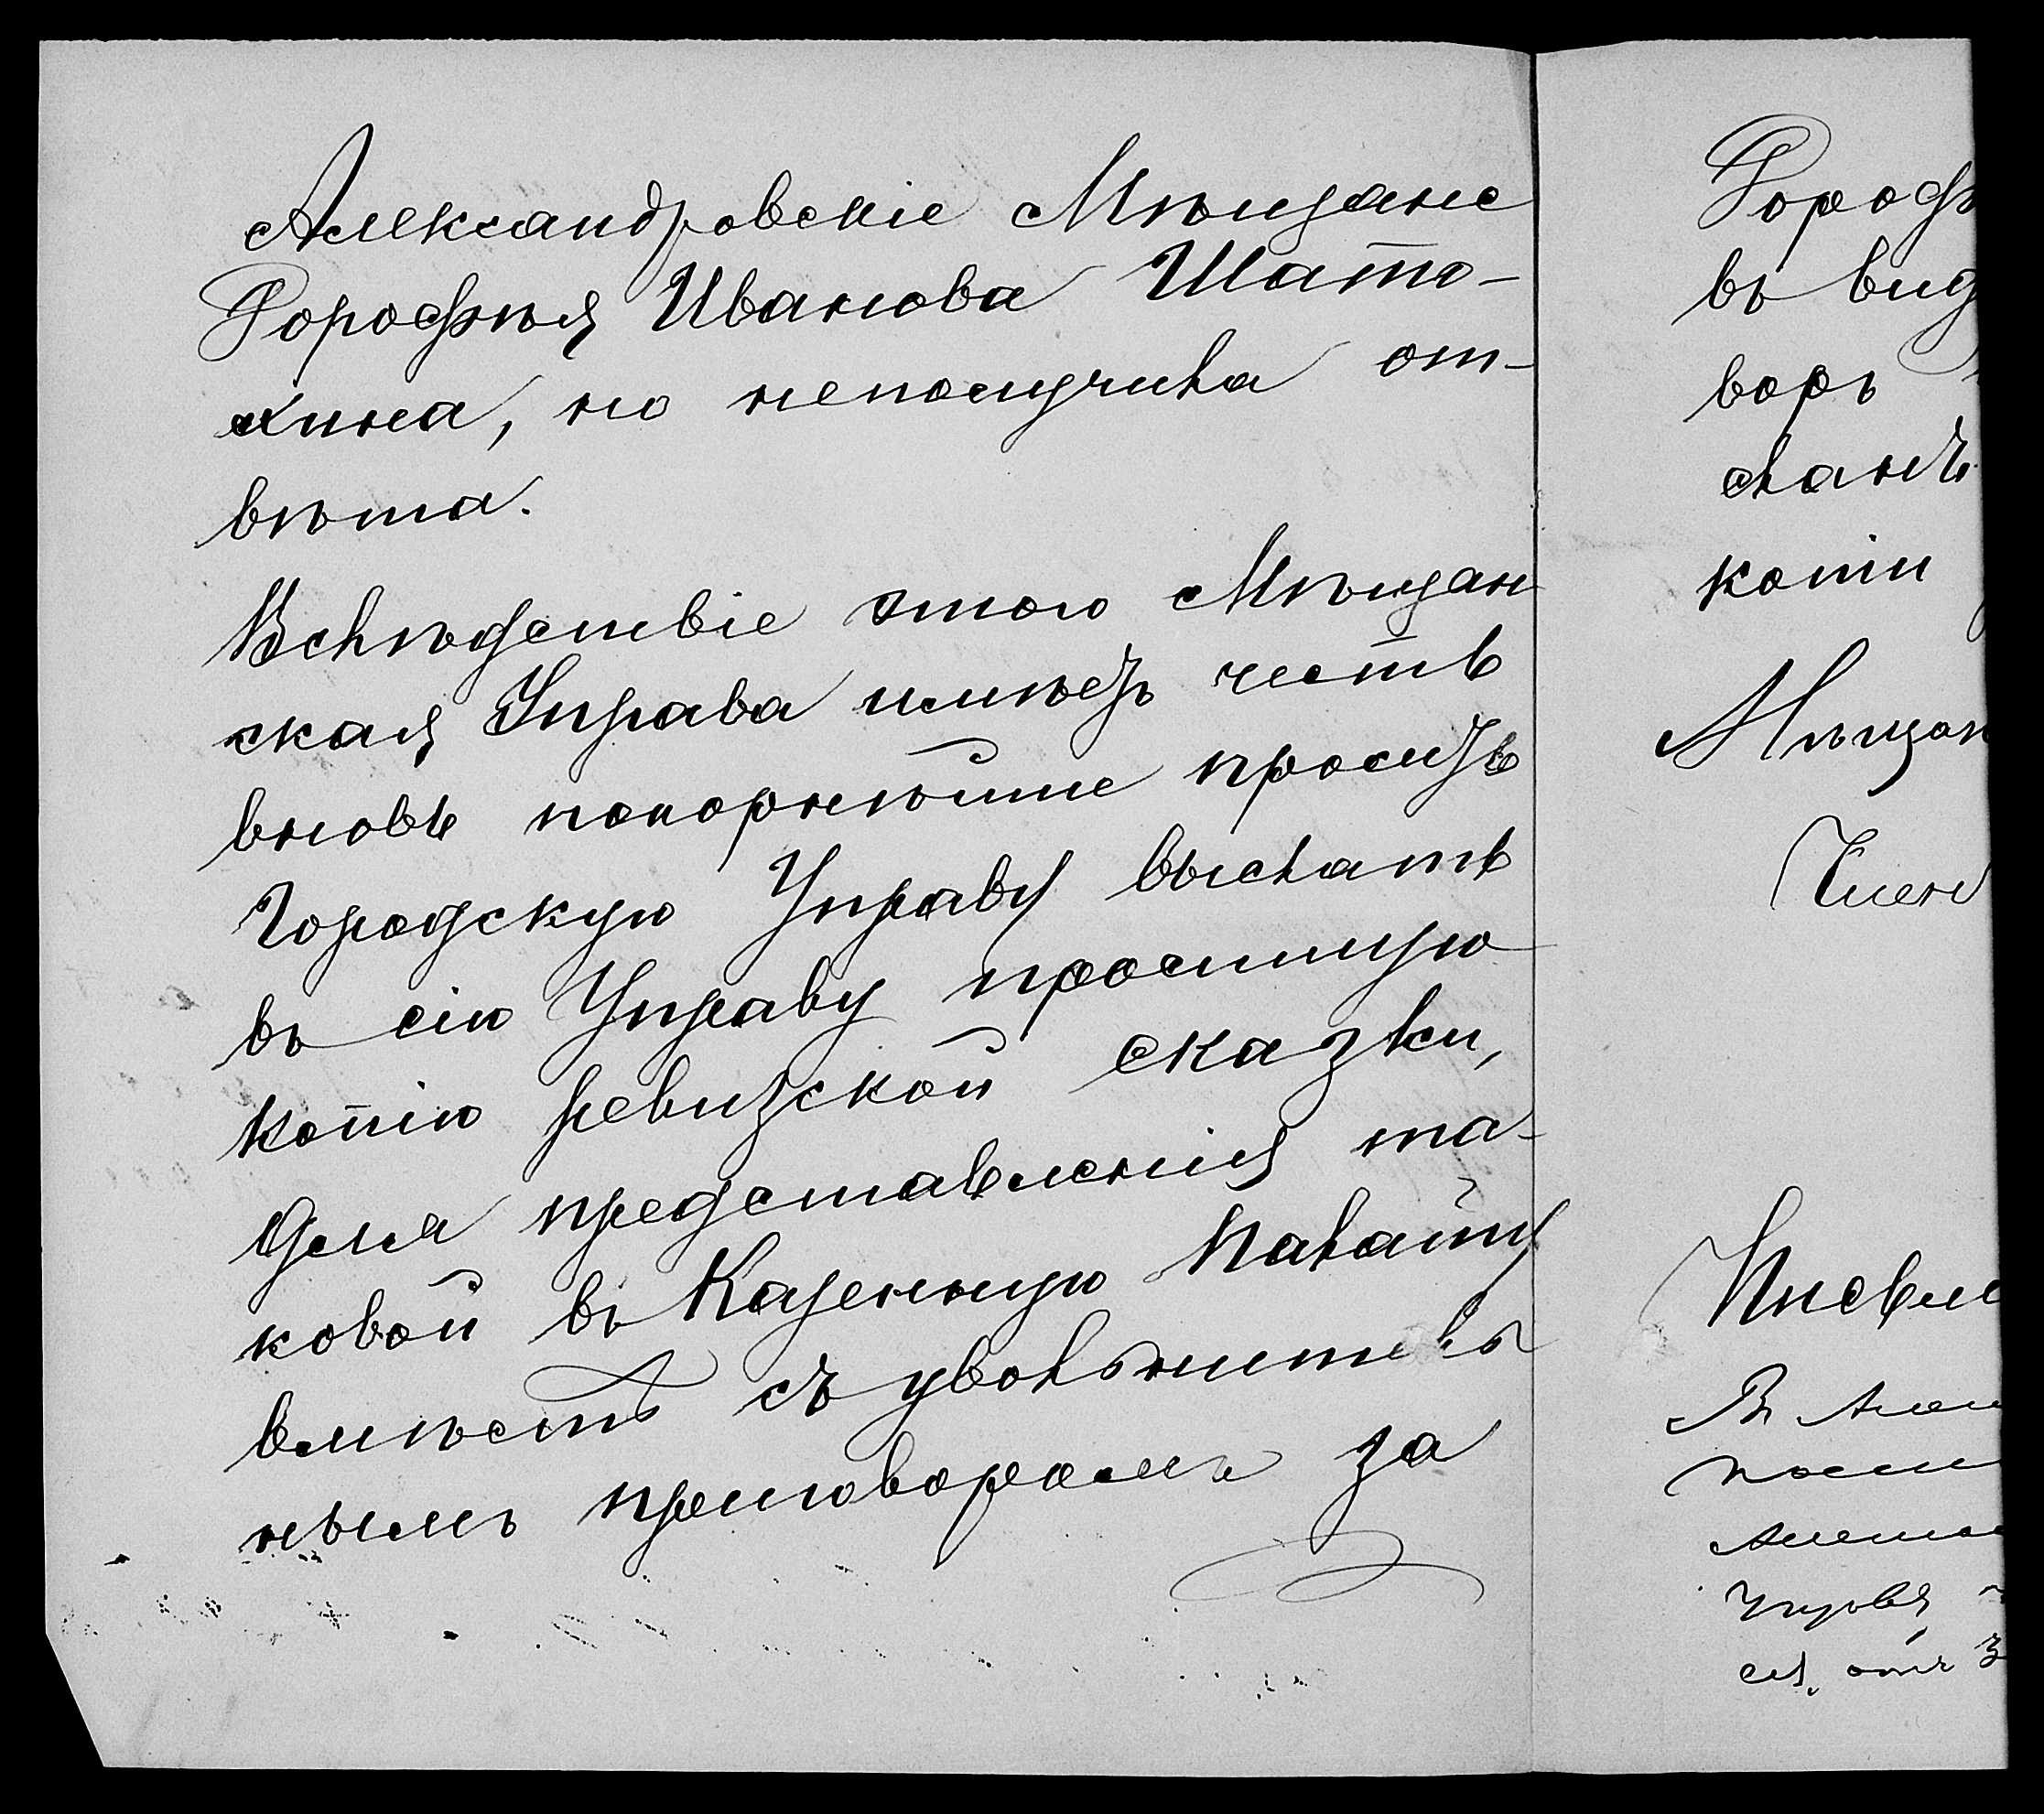 Александровскіе Мѣщане
Дорофѣя Иванова Шато-
хина, но неполучила от-
вѣта.
Вслѣдствіе этого Мѣщан
ская Управа имѣетъ честь
вновь покорнѣйше просить
Городскую Управу выслать
въ сію Управу просимую
копію ревизской сказки,
для представленія та-
ковой въ Казенную Палату
вмѣстѣ съ увольнитель
нымъ приговоромъ за
Дороф
въ вид
воръ
сланъ
копіи
Мѣщан
Член